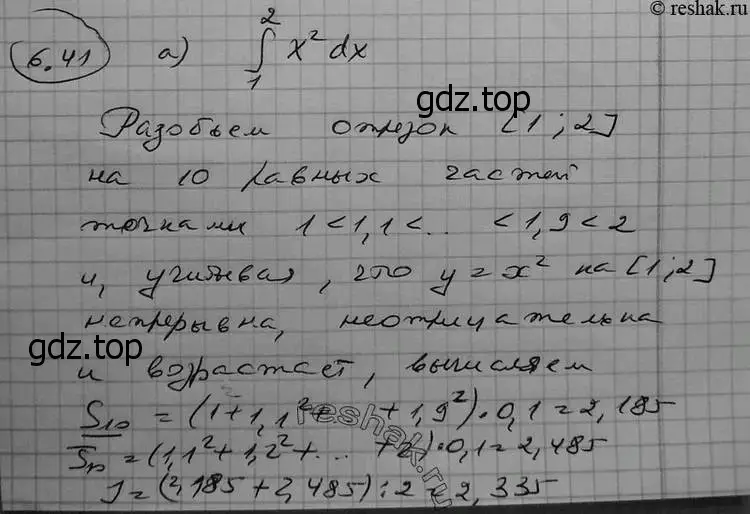 © reshak.ru
6.41 а) ∫₁² x² dx
gdz.top
Разобьем отрезок [1; 2]
на 10 равных частей
точками 1 < 1,1 < .. < 1,9 < 2
и, учитывая, что y = x² на [1; 2]
непрерывна, неотрицательна
gdz.top
и возрастает, вычисляем
S₁₀ = (1 + 1,1² + + 1,9²) · 0,1 = 2,185
reshak.ru
S̅₁₀ = (1,1² + 1,2² + ... + 2²) · 0,1 = 2,485
J = (2,185 + 2,485) : 2 = 2,335